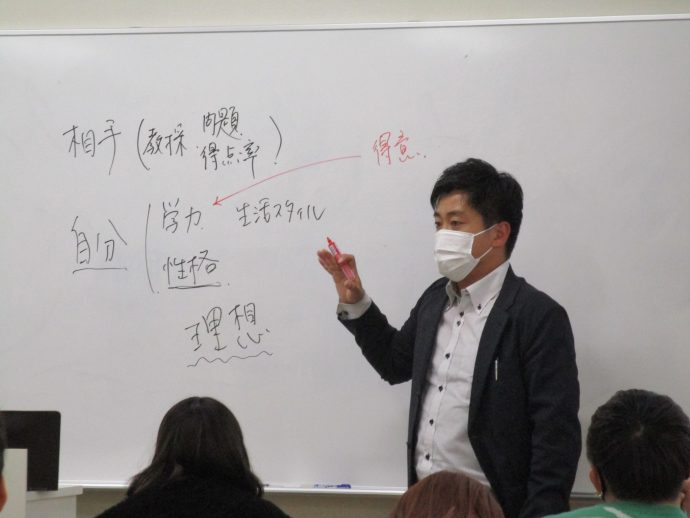 相手(教採 問題
得点率)
得意
自分(学力 生活スタイル
性格
理想